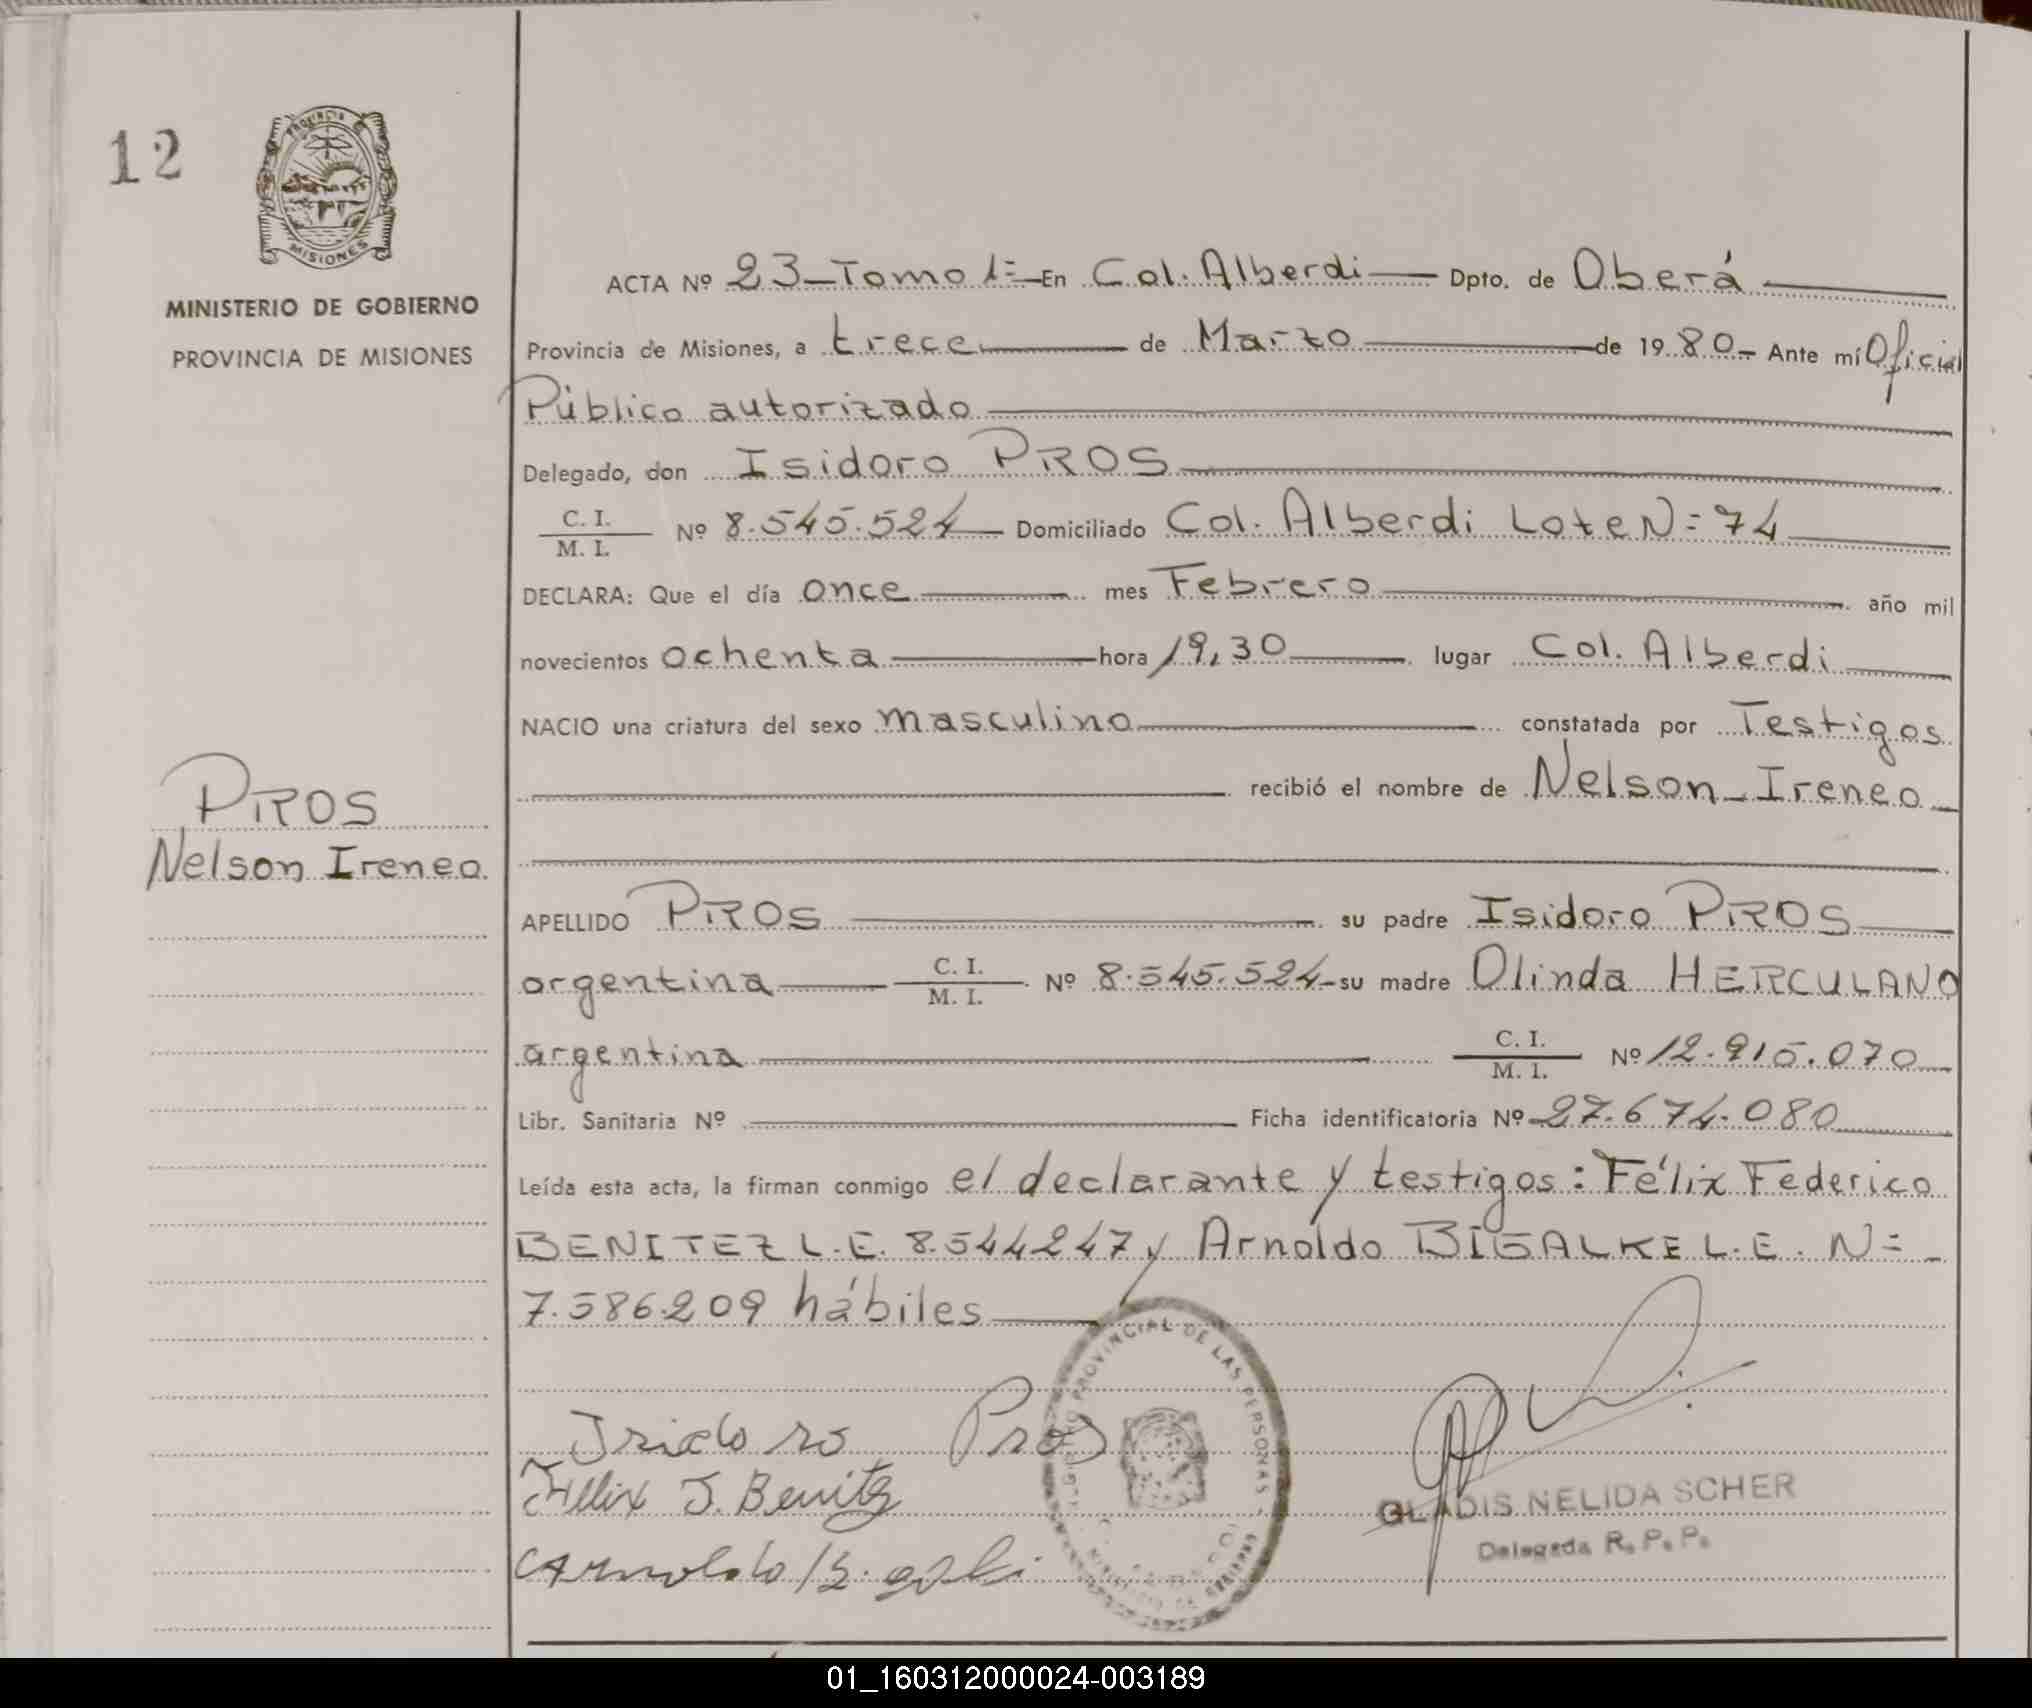 12
PROVINCIA
MISIONES
MINISTERIO DE GOBIERNO
PROVINCIA DE MISIONES
ACTA Nº 23 - Tomo 1º - En Col. Alberdi Dpto. de Oberá
Provincia de Misiones, a trece de Marzo de 1980 - Ante mí Oficial
Público autorizado
Delegado, don Isidoro PROS
C. I. / M. I. Nº 8.545.524 Domiciliado Col. Alberdi Lote N= 74
DECLARA: Que el día once mes Febrero año mil
novecientos ochenta hora 19,30 lugar Col. Alberdi
NACIO una criatura del sexo masculino constatada por Testigos
recibió el nombre de Nelson Ireneo
PROS
Nelson Ireneo
APELLIDO PROS su padre Isidoro PROS
argentina C. I. / M. I. Nº 8.545.524 - su madre Olinda HERCULANO
argentina C. I. / M. I. Nº 12.915.070
Libr. Sanitaria Nº Ficha identificatoria Nº 27.674.080
Leída esta acta, la firman conmigo el declarante y testigos: Félix Federico
BENITEZ L.E. 8.544247 y Arnoldo BIGALKE L.E. N=
7.586.209 hábiles
Isidoro Pros
Félix J. Benitz
Arnoldo
PROVINCIAL DE LAS PERSONAS
GLADIS NELIDA SCHER
Delegada R. P. P.
01_160312000024-003189